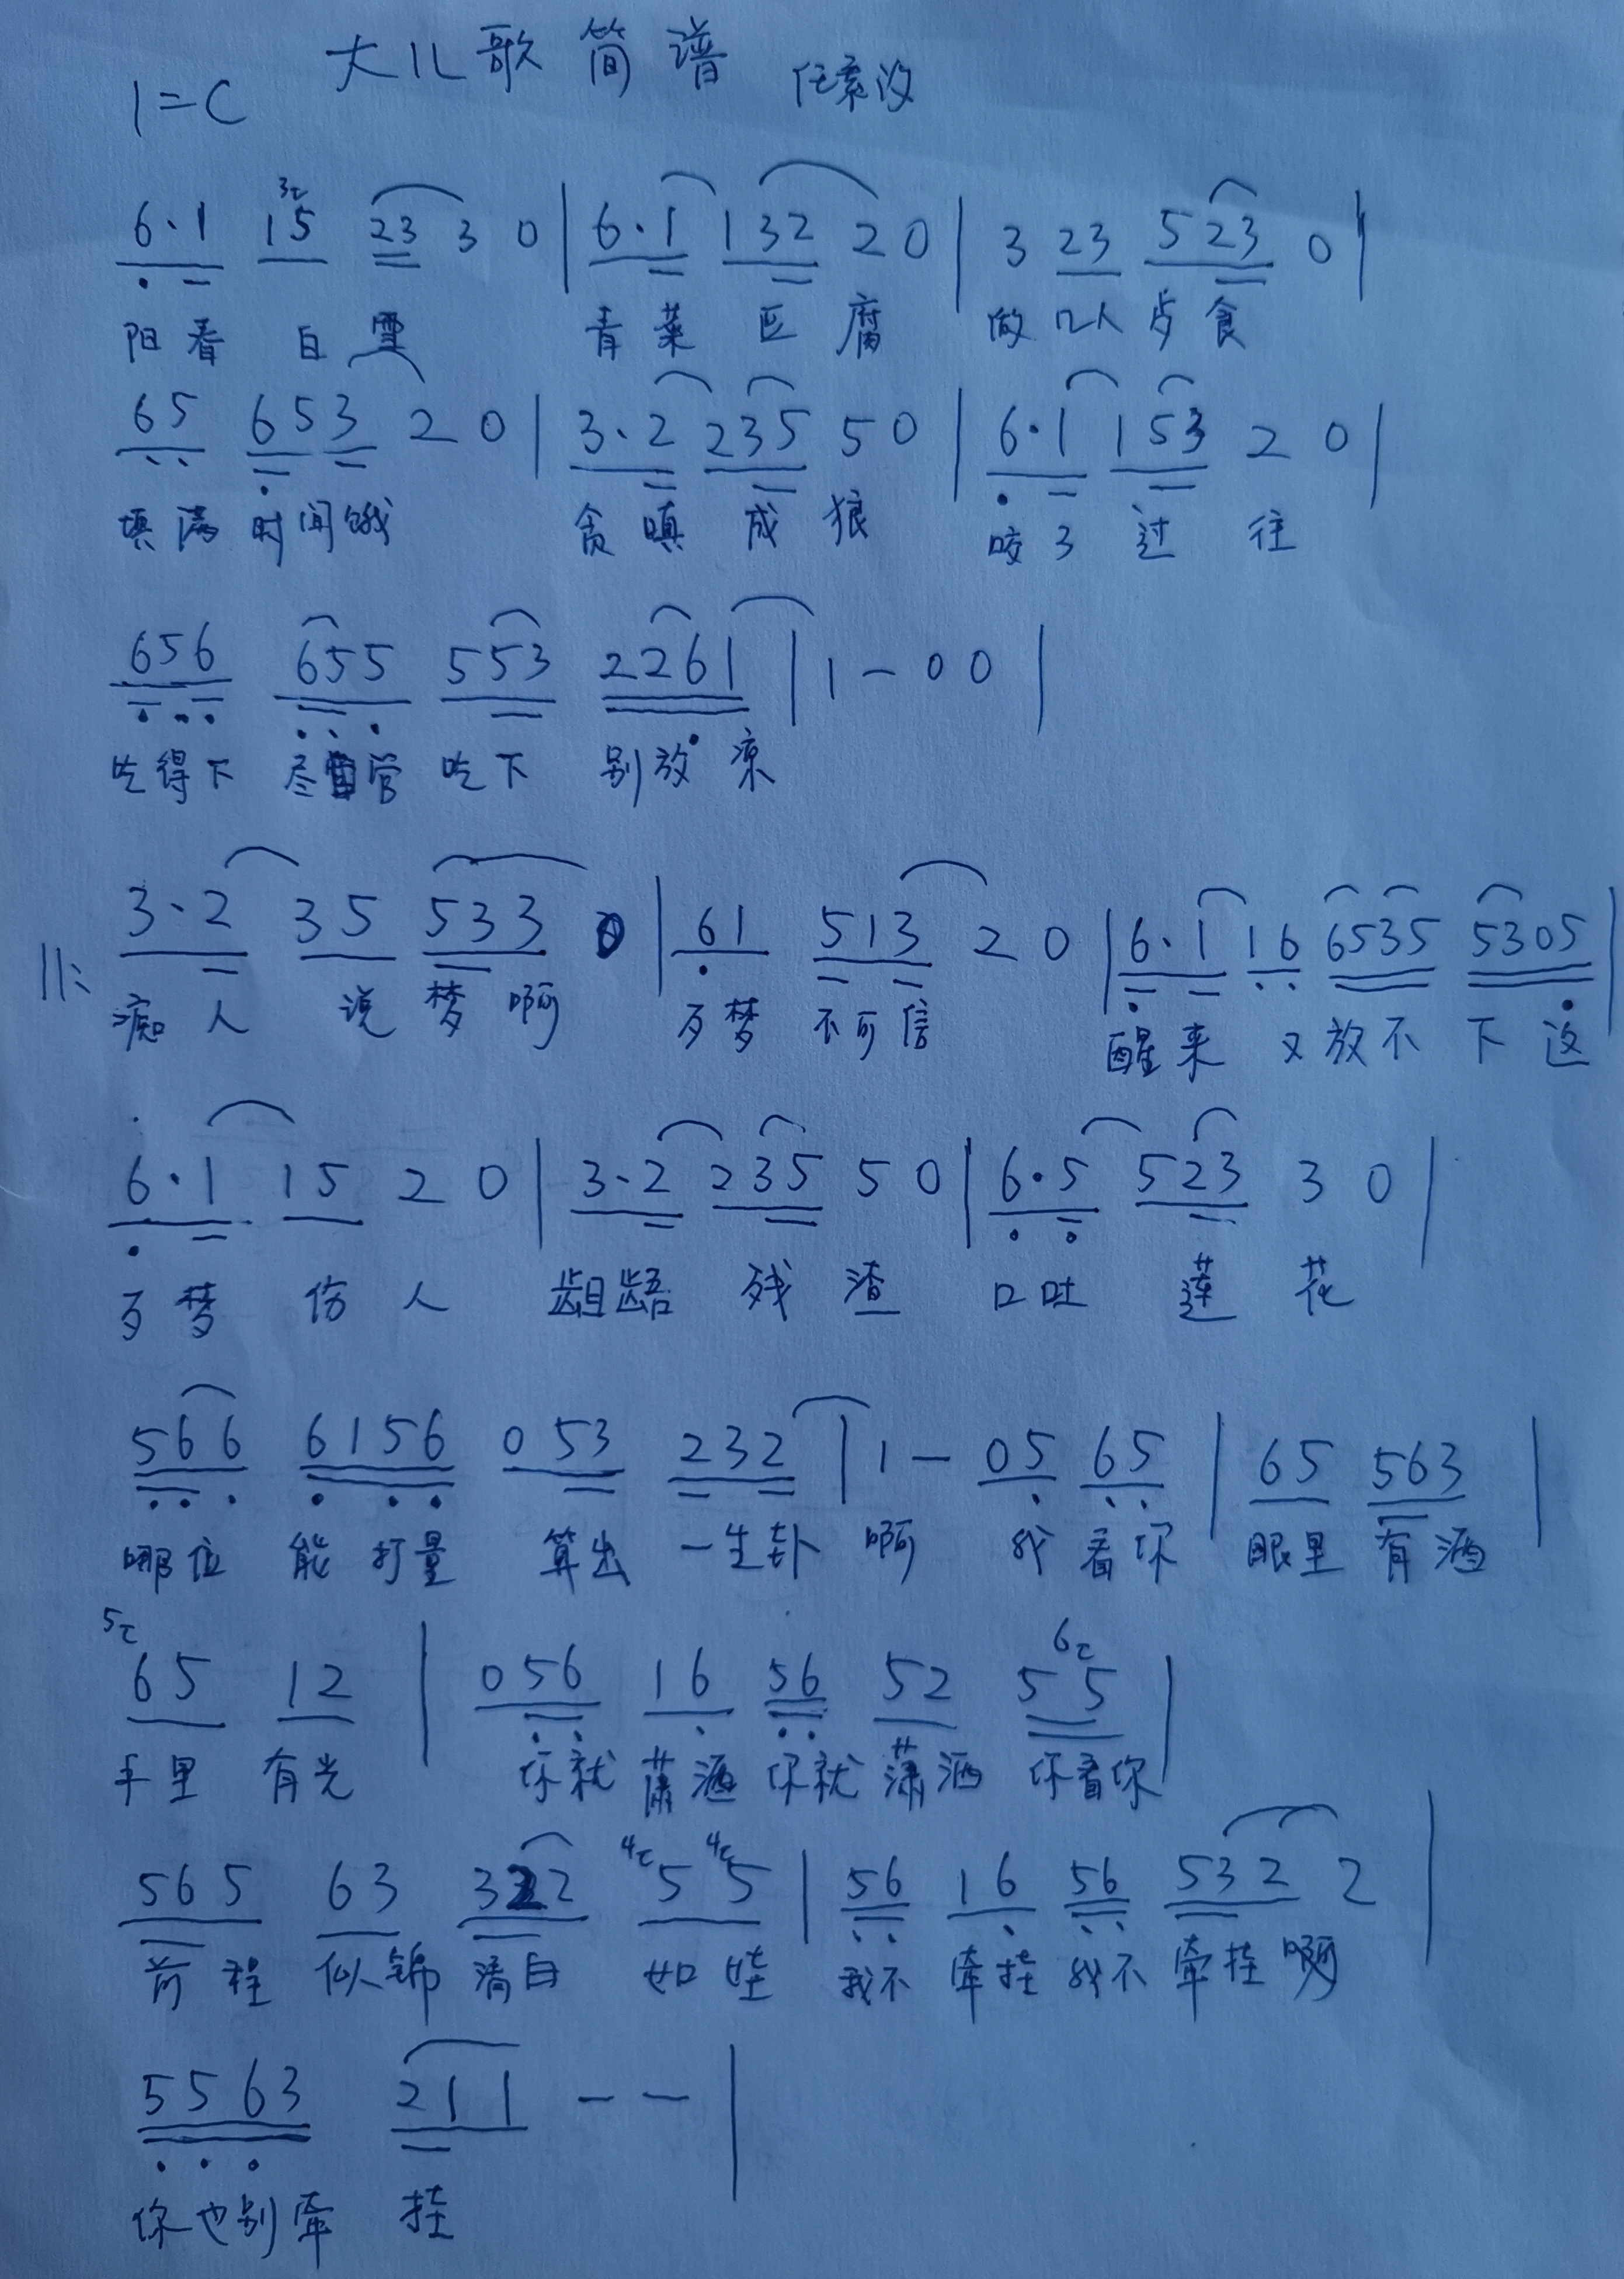 大儿歌简谱
1=C
6·1 15 23 3 0 | 6·1 132 2 0 | 3 23 523 0 |
阳春 白雪 青菜 豆腐 做 食
65 653 2 0 | 3·2 235 5 0 | 6·1 153 2 0 |
填满 时间 饿 贪嗔 成狼 咬了 过往
656 655 553 2261 | 1 - 0 0 |
吃得下 尽管 吃下 别放凉
||: 3·2 35 533 0 | 61 513 2 0 | 6·1 16 6535 5305 |
痴人 说梦啊 歹梦 不可信 醒来 又放不下 这
6·1 15 2 0 | 3·2 235 5 0 | 6·5 523 3 0 |
歹梦 伤人 龃龉 残渣 口吐 莲花
566 6156 053 232 | 1 - 05 65 | 65 563 |
哪位 能打量 算出 一生卦 啊 我看你 眼里 有酒
65 12 | 056 16 56 52 55 |
手里 有光 你就 萧洒 你就 潇洒 你看你
565 63 322 55 | 56 16 56 532 2 |
前程 似锦 清白 如娃 我不 牵挂 我不 牵挂啊
5563 211 - - |
你也别牵 挂